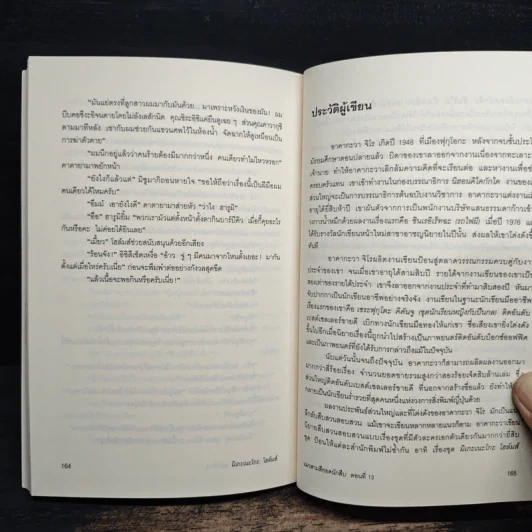 "มันแย่ตรงที่ลูกสาวผมมากับมันด้วย... มาเพราะหวังเงินของมัน! ผม
บีบคอชิงะอิจนตายโดยไม่ลังเลสักนิด คุณชิระอิชิแค่ยืนดูเฉย ๆ ส่วนคุณคาวากุชิ
ตามมาทีหลัง เขากับผมช่วยกันแขวนศพไว้ในห้องน้ำ จัดฉากให้ดูเหมือนเป็น
การฆ่าตัวตาย"
"ผมนึกอยู่แล้วว่าคนร้ายต้องมีมากกว่าหนึ่ง คนเดียวทำไม่ไหวหรอก"
คาตายามาพยักหน้า
"ยังไงก็แล้วแต่" มิซูมากิถอนหายใจ "ขอให้ถือว่าเรื่องนี้เป็นฝีมือผม
คนเดียวได้ไหมครับ"
"ฮึ่มม์ เอายังไงดี" คาตายามาส่ายหัว "ว่าไง ฮารุมิ"
"อือ" ฮารุมิยิ้ม "พวกเรามัวแต่ตั้งหน้าตั้งตากินบาร์บีคิว เมื่อกี้คุยอะไร
กันหรือคะ ไม่ค่อยได้ยินเลย"
"เมี้ยว" โฮล์มส์ช่วยสนับสนุนด้วยอีกเสียง
"ร้อนจัง!" อิชิสึเช็ดเหงื่อ "อ้าว จู่ ๆ มีคนมาจากไหนตั้งเยอะ! มากัน
ตั้งแต่เมื่อไหร่ครับเนี่ย" ก่อนจะพึมพำต่ออย่างกังวลสุดขีด
"แล้วเนื้อจะพอกินหรือครับเนี่ย!"
164
มิเกะเนะโกะ โฮล์มส์
ประวัติผู้เขียน
อาคากะวา จิโร เกิดปี 1948 ที่เมืองฟุกุโอกะ หลังจากจบชั้นประโ
มัธยมศึกษาตอนปลายแล้ว บิดาของเขาลาออกจากงานเนื่องจากทะเลาะ
เจ้านาย ทำให้อาคากะวาเลิกล้มความคิดที่จะเรียนต่อ และหางานเพื่อช่
ครอบครัวแทน เขาเข้าทำงานในกองบรรณาธิการ
ส่วนใหญ่จะเป็นการตรวจต้นฉบับงานวิชาการ อาคากะวาแต่งงานเมื่
อายุได้ยี่สิบห้าปี
วงการน้ำหมึกด้วยผลงานเรื่องแรกคือ
ได้รับรางวัลนักเขียนหน้าใหม่สาขาอาชญนิยายในปีนั้น ส่งผลให้เขาโด่งดังขึ้
ทันที
อาคากะวา จิโรผลิตงานเขียนป้อนสู่ตลาดวรรณกรรมควบคู่กับงาน
ประจำของเขา จนเมื่อเขาอายุได้สามสิบปี รายได้จากงานเขียนของเขาเป็น
สองเท่าของรายได้ประจำ เขาจึงลาออกจากงานประจำที่ทำมาสิบสองปี หันมา
จับปากกาเป็นนักเขียนอาชีพอย่างจริงจัง งานเขียนในฐานะนักเขียนมืออาชีพ
เรื่องแรกของเขาคือ
เบสต์เซลเลอร์ขายดี เบิกทางนักเขียนมือทองให้แก่เขา ชื่อเสียงเขายิ่งโด่งดัง
ขึ้นไปอีกเมื่อนิยายเรื่องนี้ถูกนำไปสร้างเป็นภาพยนตร์ติดอันดับบ็อกซ์ออฟฟิศ
และเป็นภาพยนตร์ที่ยังได้รับการกล่าวถึงแม้ในปัจจุบัน
นับแต่วันนั้นจนถึงปัจจุบัน อาคากะวาก็สามารถผลิตผลงานออกมา
มากกว่าสี่ร้อยเรื่อง จำนวนยอดขายรวมสูงกว่าสองร้อยเจ็ดสิบล้านเล่ม
ส่วนใหญ่ติดอันดับเบสต์เซลเลอร์ขายดี ที่นอกจากสร้างชื่อแล้ว ยังทำให้
กลายเป็นนักเขียนร่ำรวยที่สุดคนหนึ่งแห่งวงการสิ่งพิมพ์ญี่ปุ่นด้วย
ผลงานประพันธ์ส่วนใหญ่และที่โด่งดังของอาคากะวา จิโร มักเป็นแ
ลึกลับสืบสวนสอบสวน แม้เขาจะเขียนหลากหลายแนวก็ตาม อาคากะวาเขียน
นิยายสืบสวนสอบสวนแบบเรื่องชุดที่มีตัวละครเอกตัวเดียวกันมากกว่ายี่สิบ
ชุด ป้อนให้แต่ละสำนักพิมพ์ไม่ซ้ำกัน อาทิ เรื่องชุด
แมวสามสียอดนักสืบ ตอนที่ 13
165